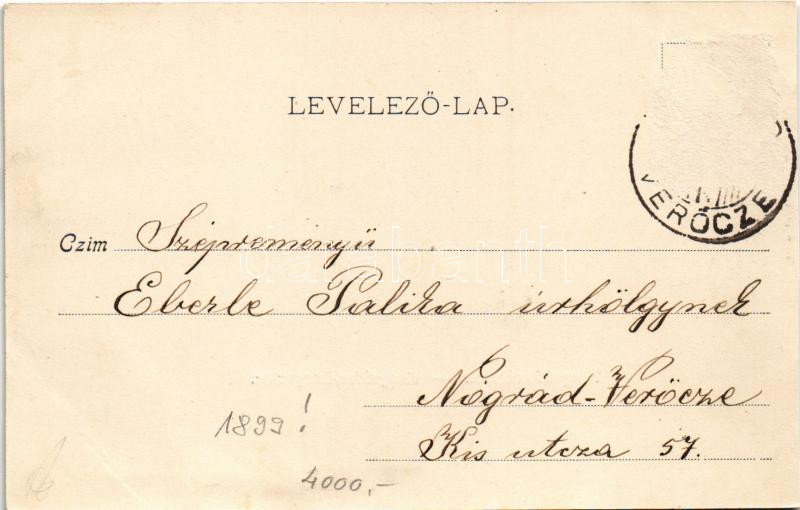 LEVELEZŐ-LAP.
VERŐCZE
Czim Szépreményü
Eberle Palika úrhölgynek
Nógrád-Verőcze
Kis utcza 57.
1899!
4000,-
darabanth